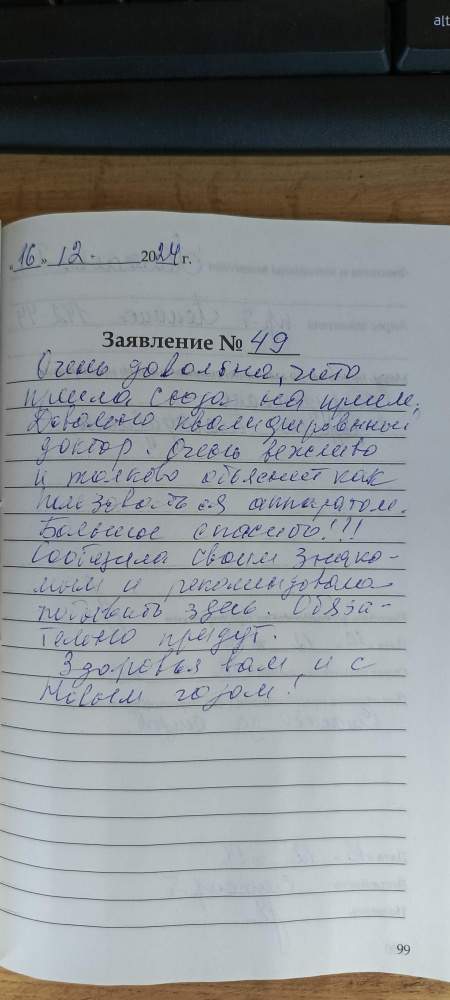 alt
«16» 12. 2024 г.
Заявление № 49
Очень довольна, что
пришла сюда на прием.
Довольно квалицированный
доктор. Очень вежливо
и толково объясняет как
пользоваться аппаратом.
Большое спасибо!!!
Сообщила своим знако-
мым и рекомендовала
побывать здесь. Обяза-
тельно придут.
Здоровья вам, и с
Новым годом!
99